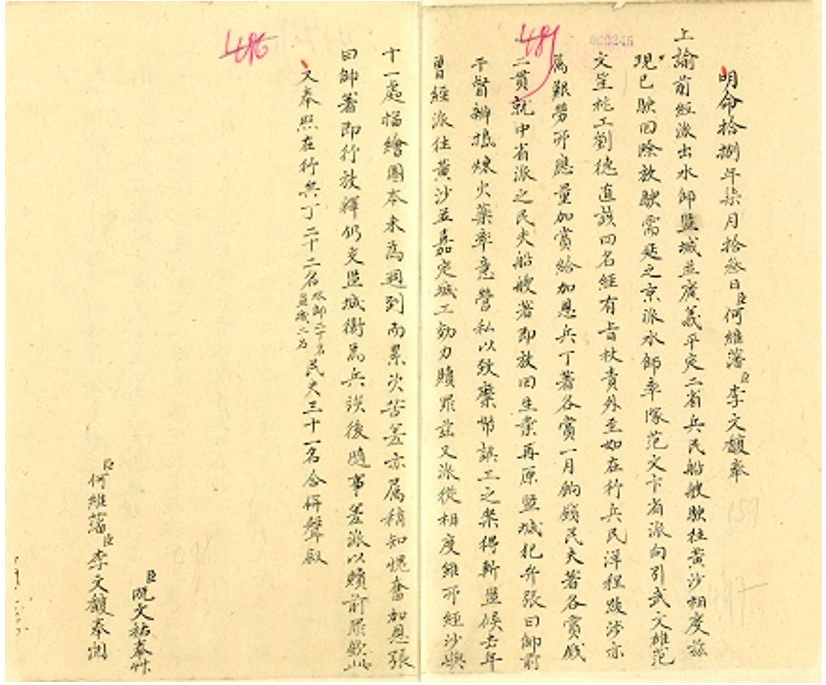 487
000246
明命拾捌年柒月拾叄日臣何維藩臣李文馥奉
上諭前經派出水師監城並廣義平定二省兵民船艘駛往黃沙相度茲
現已駛回除放駛需延之京派水師率隊范文卞省派向引武文雄范
文笙柁工劉德直該四名經有旨杖責外至如在行兵民洋程跋涉亦
屬艱勞所應量加賞給加恩兵丁著各賞一月餉錢民夫著各賞錢
二貫就中省派之民夫船艘著即放回生業再原監城犯弁張曰師前
干督辦搗煉火藥率意營私以致藥弊誤工之案得斬監候去年
曾經派往黃沙並嘉定城工効力贖罪茲又派從相度雖所經沙嶼
486
十一處描繪圖本未為週到而累次苦差亦屬稍知愧奮加恩張
曰師著即行放釋仍交監城衛為兵俟後隨事差派以贖前罪欽此
又奉照在行兵丁二十二名水師二十名監城二名民夫三十一名合併聲敘
臣阮文祐奉艸
臣何維藩臣李文馥奉閱